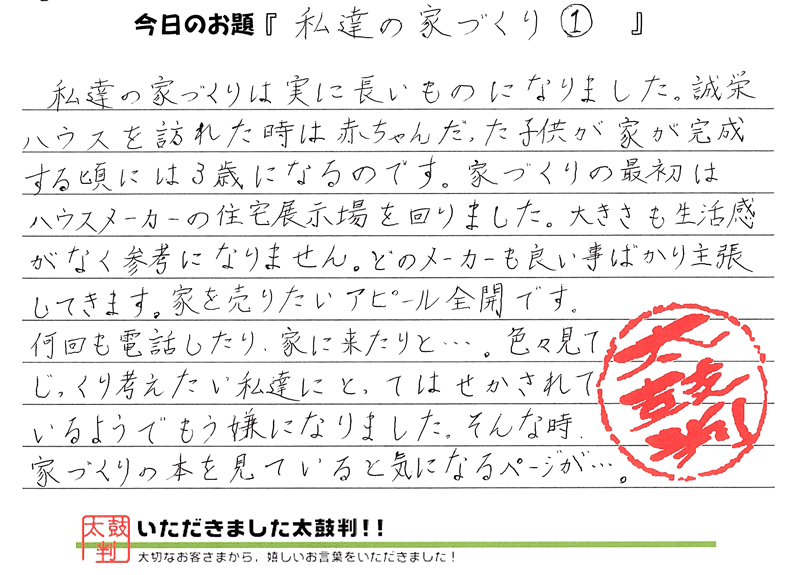 今日のお題『 私達の家づくり① 』
私達の家づくりは実に長いものになりました。誠栄
ハウスを訪れた時は赤ちゃんだった子供が家が完成
する頃には3歳になるのです。家づくりの最初は
ハウスメーカーの住宅展示場を回りました。大きさも生活感
がなく参考になりません。どのメーカーも良い事ばかり主張
してきます。家を売りたいアピール全開です。
何回も電話したり、家に来たりと…。色々見て
じっくり考えたい私達にとってはせかされて
いるようでもう嫌になりました。そんな時、
家づくりの本を見ていると気になるページが…。
太鼓判
太鼓判
いただきました太鼓判!!
大切なお客さまから、嬉しいお言葉をいただきました!